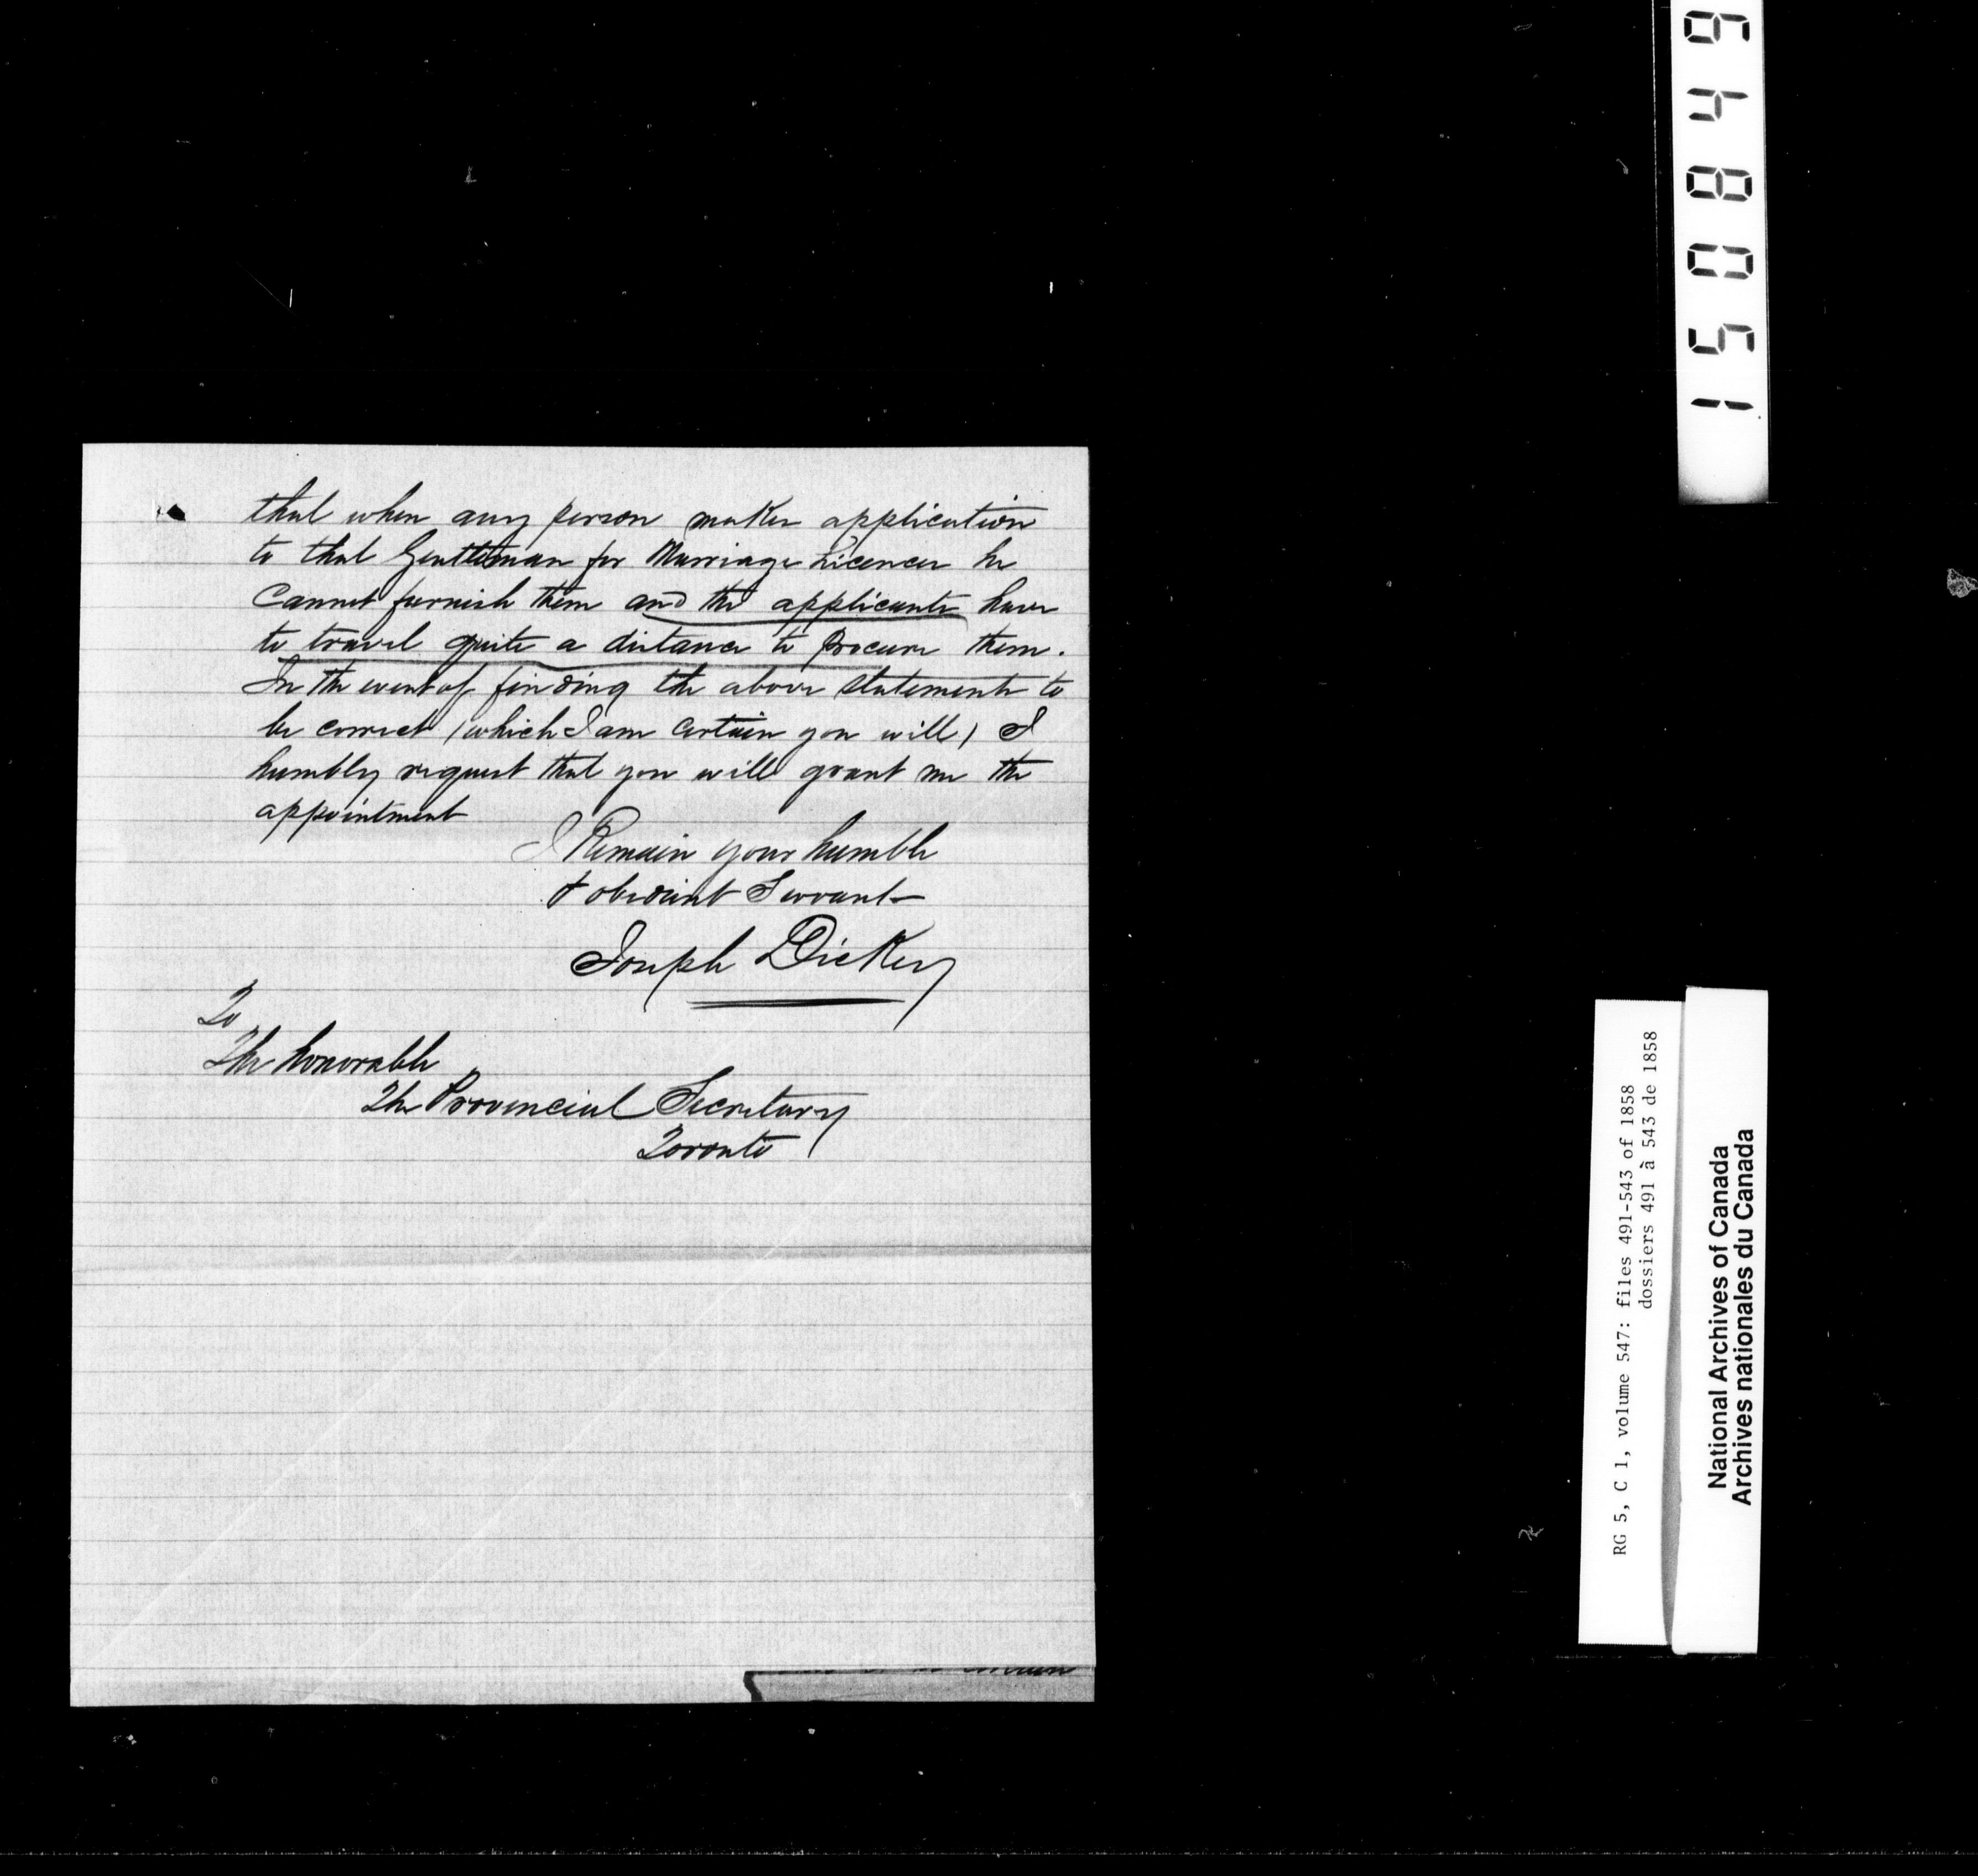 that when any person makes application
to that Gentleman for Marriage Licences he
Cannot furnish them and the applicants have
to travel quite a distance to procure them.
In the event of finding the above statements to
be correct (which I am certain you will) I
humbly request that you will grant me the
appointment
I Remain your humble
& obedient Servant
Joseph Dickey
To
The honorable
The Provincial Secretary
Toronto
150849
RG 5, C 1, volume 547: files 491-543 of 1858
dossiers 491 à 543 de 1858
National Archives of Canada
Archives nationales du Canada